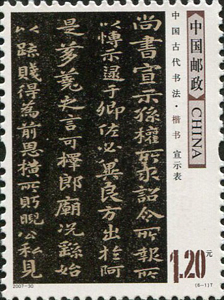 尚書宣示孫權所求詔令所報所
以博示逮于卿佐必冀良方出於阿
是芻蕘之言可擇郎廟況繇始
以疏賤得為前恩橫所盻睨公私見
中国古代书法·楷书 宣示表
中国邮政 CHINA
1.20元
2007-30
(6-1)T